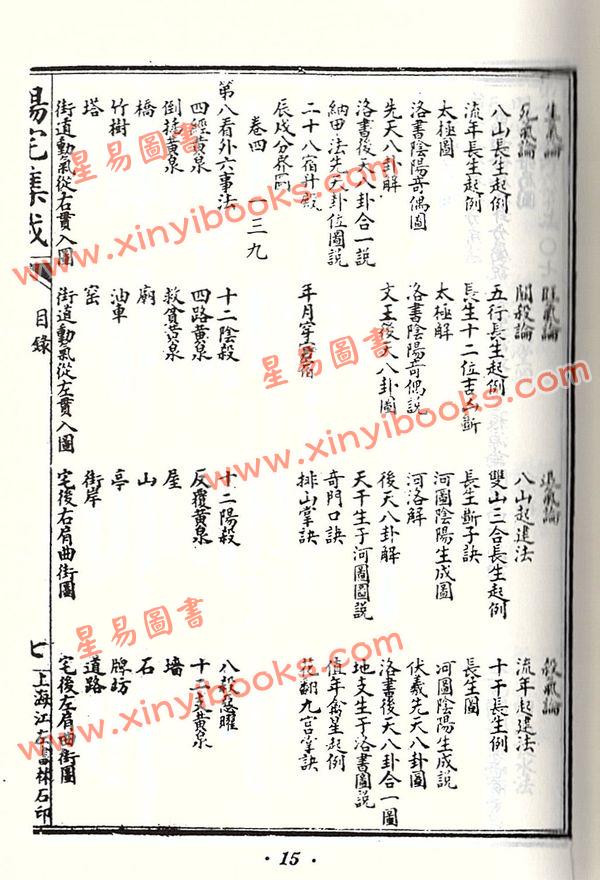 生氣論
旺氣論
退氣論
殺氣論
死氣論
關殺論
八山起運法
流年起運法
八山長生起例
五行長生起例
雙山三合長生起例
十干長生例
流年長生起例
長生十二位吉凶斷
長生斷子訣
長生圖
太極圖
太極解
河圖陰陽生成圖
河圖陰陽生成說
洛書陰陽奇偶圖
洛書陰陽奇偶說
河洛解
伏羲先天八卦圖
先天八卦解
文王後天八卦圖
後天八卦解
洛書後天八卦合一圖
洛書後天八卦合一說
天干生于河圖圖說
地支生于洛書圖說
納甲法先天卦位圖說
奇門口訣
值年禽星起例
二十八宿
年月
排山掌訣
九宮掌訣
辰戌分界圖
卷四
一三九
第八看外六事法
十二陰殺
十二陽殺
八殺惡曜
四經黃泉
四路黃泉
反覆黃泉
十二黃泉
倒捷黃泉
救貧黃泉
屋
墻
橋
廟
山
石
竹樹
油車
亭
牌坊
塔
窑
街岸
道路
街道動氣從右貫入圖
街道動氣從左貫入圖
宅後右肩曲街圖
宅後左肩曲街圖
陽宅集成
目錄
七
上海江左書林石印
星易圖書
www.xinyibooks.com
星易圖書
www.xinyibooks.com
星易圖書
www.xinyibooks.com
· 15 ·